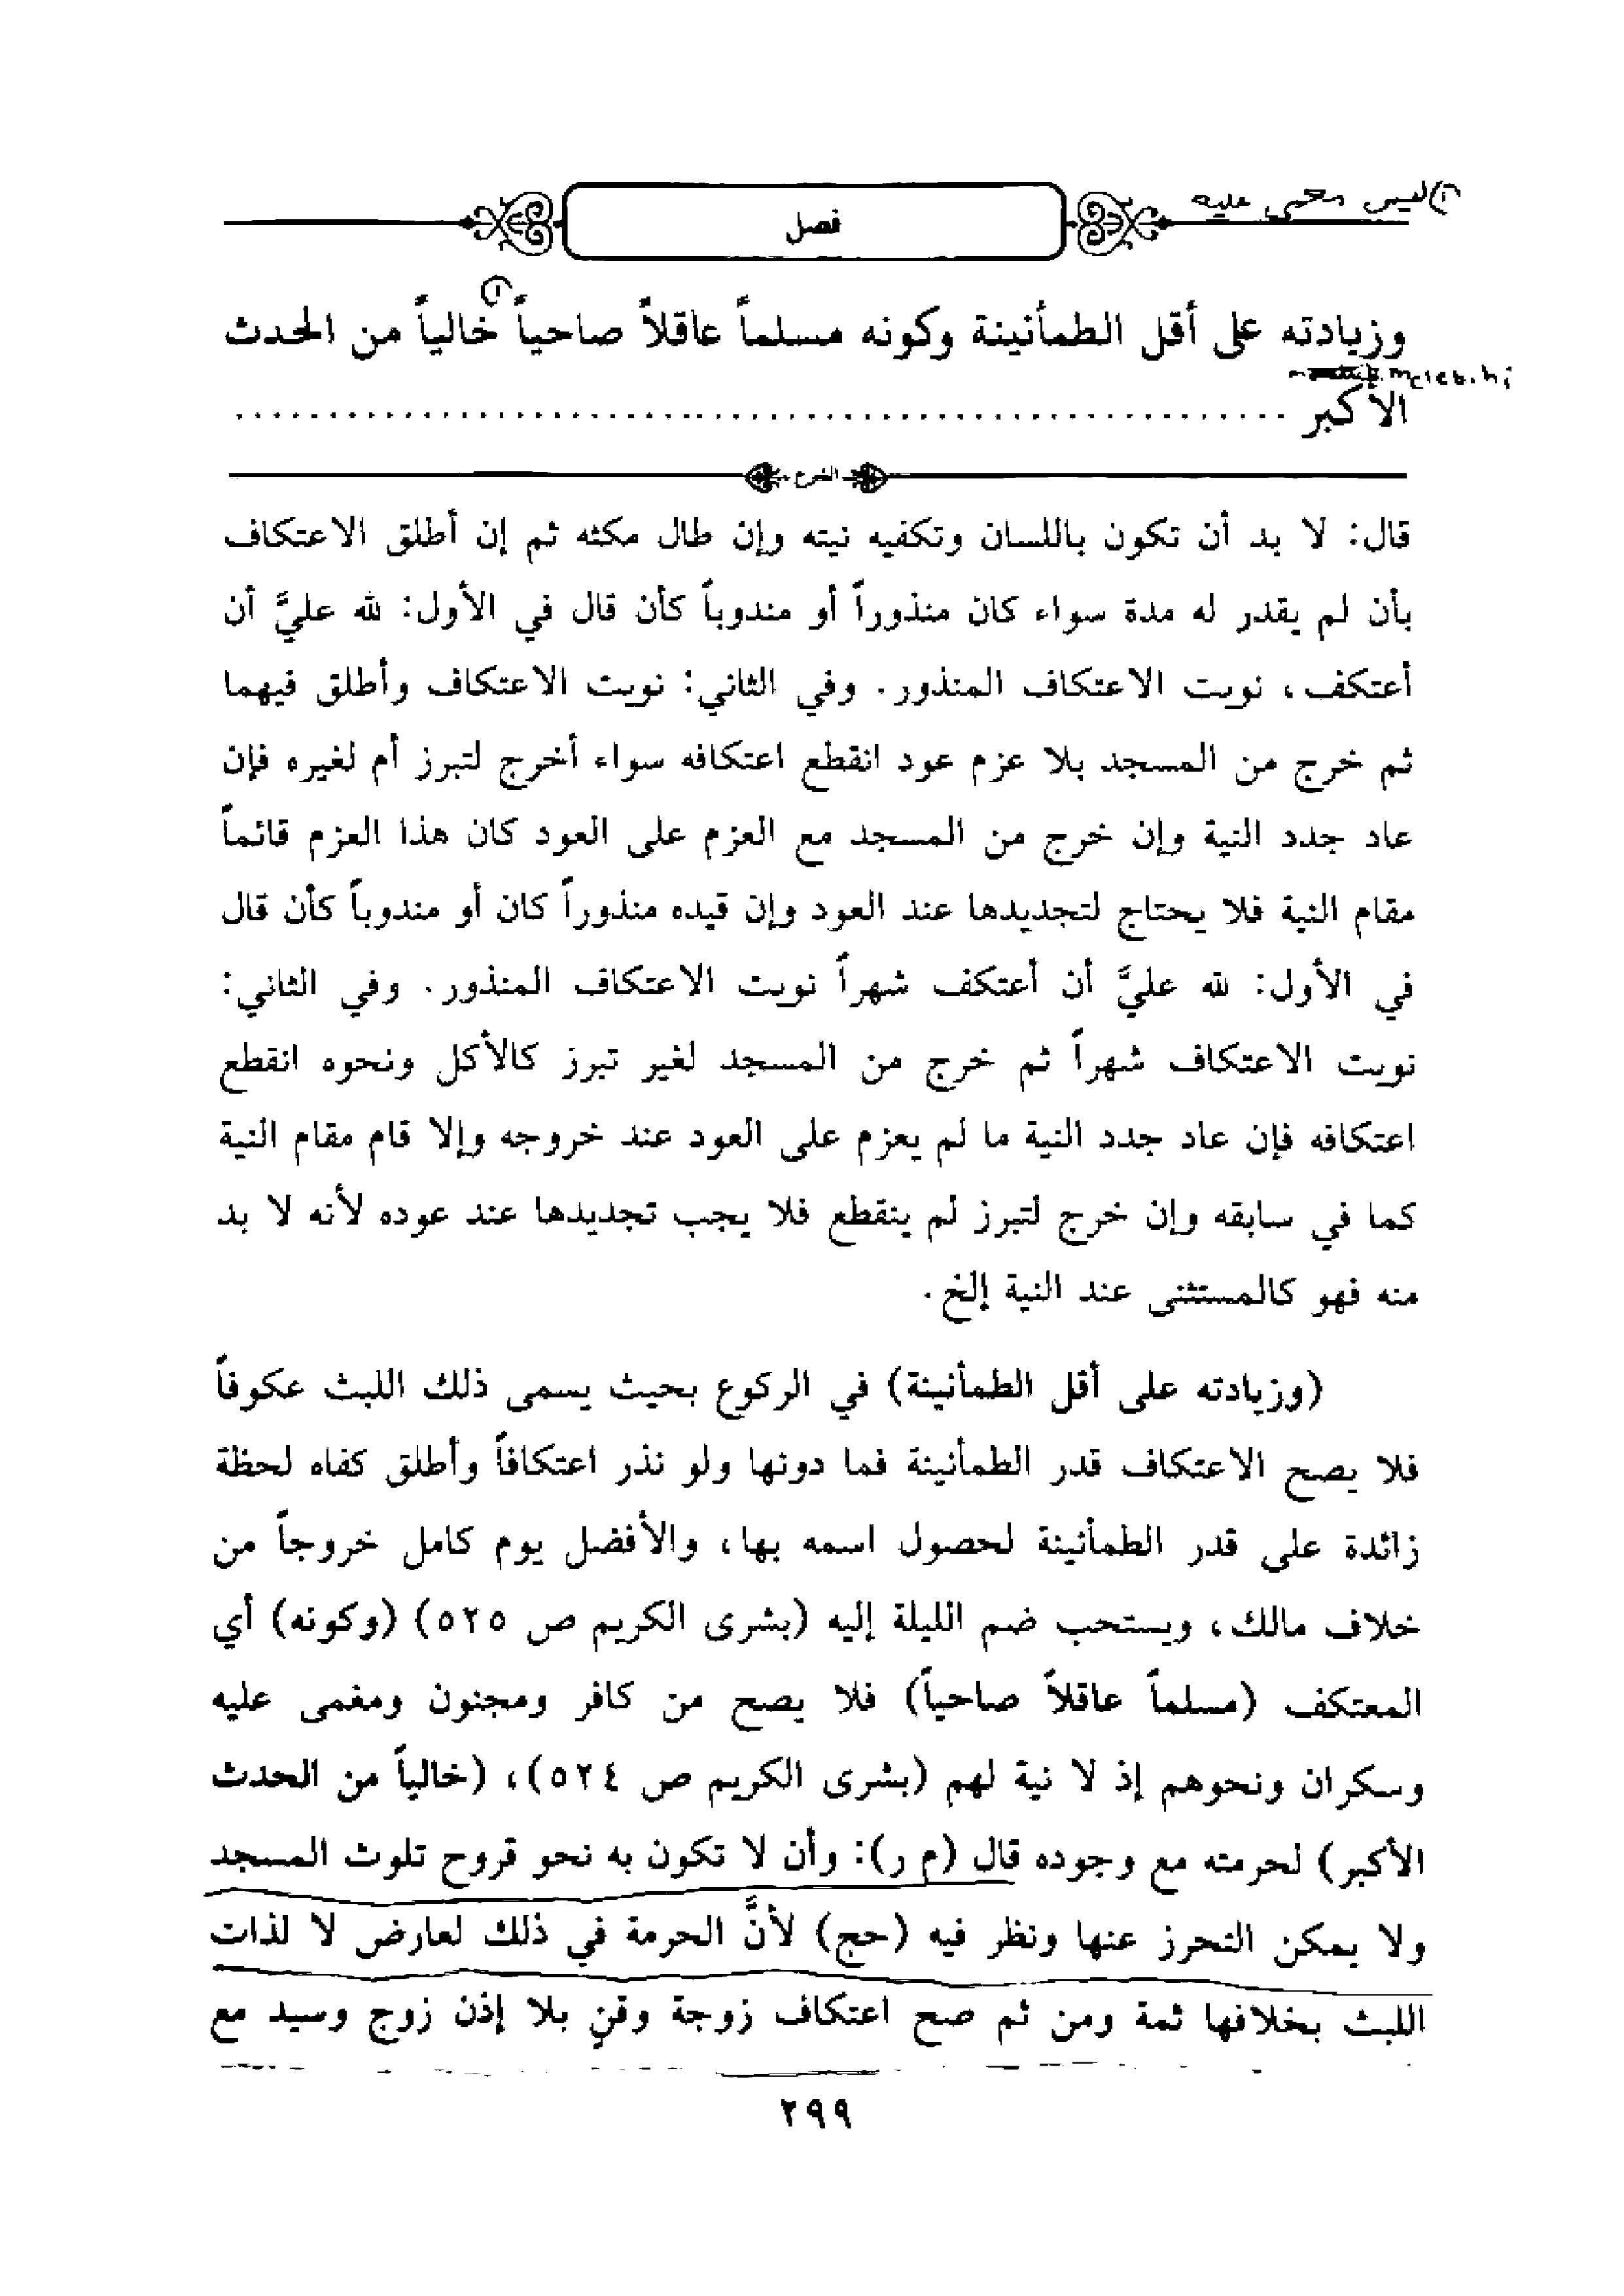 (١) ليس مغمى عليه
فصل
(١)
وزيادته على أقل الطمأنينة وكونه مسلماً عاقلاً صاحياً خالياً من الحدث
الأكبر ................................
الشرح
قال: لا بد أن تكون باللسان وتكفيه نيته وإن طال مكثه ثم إن أطلق الاعتكاف
بأن لم يقدر له مدة سواء كان منذوراً أو مندوباً كأن قال في الأول: لله عليَّ أن
أعتكف، نويت الاعتكاف المنذور. وفي الثاني: نويت الاعتكاف وأطلق فيهما
ثم خرج من المسجد بلا عزم عود انقطع اعتكافه سواء أخرج لتبرز أم لغيره فإن
عاد جدد النية وإن خرج من المسجد مع العزم على العود كان هذا العزم قائماً
مقام النية فلا يحتاج لتجديدها عند العود وإن قيده منذوراً كان أو مندوباً كأن قال
في الأول: لله عليَّ أن أعتكف شهراً نويت الاعتكاف المنذور. وفي الثاني:
نويت الاعتكاف شهراً ثم خرج من المسجد لغير تبرز كالأكل ونحوه انقطع
اعتكافه فإن عاد جدد النية ما لم يعزم على العود عند خروجه وإلا قام مقام النية
كما في سابقه وإن خرج لتبرز لم ينقطع فلا يجب تجديدها عند عوده لأنه لا بد
منه فهو كالمستثنى عند النية إلخ.
(وزيادته على أقل الطمأنينة) في الركوع بحيث يسمى ذلك اللبث عكوفاً
فلا يصح الاعتكاف قدر الطمأنينة فما دونها ولو نذر اعتكافاً وأطلق كفاه لحظة
زائدة على قدر الطمأنينة لحصول اسمه بها، والأفضل يوم كامل خروجاً من
خلاف مالك، ويستحب ضم الليلة إليه (بشرى الكريم ص ٥٢٥) (وكونه) أي
المعتكف (مسلماً عاقلاً صاحياً) فلا يصح من كافر ومجنون ومغمى عليه
وسكران ونحوهم إذ لا نية لهم (بشرى الكريم ص ٥٢٤)، (خالياً من الحدث
الأكبر) لحرمته مع وجوده قال (م ر): وأن لا تكون به نحو قروح تلوث المسجد
ولا يمكن التحرز عنها ونظر فيه (حج) لأنَّ الحرمة في ذلك لعارض لا لذات
اللبث بخلافها ثمة ومن ثم صح اعتكاف زوجة وقنٍ بلا إذن زوج وسيد مع
٢٩٩